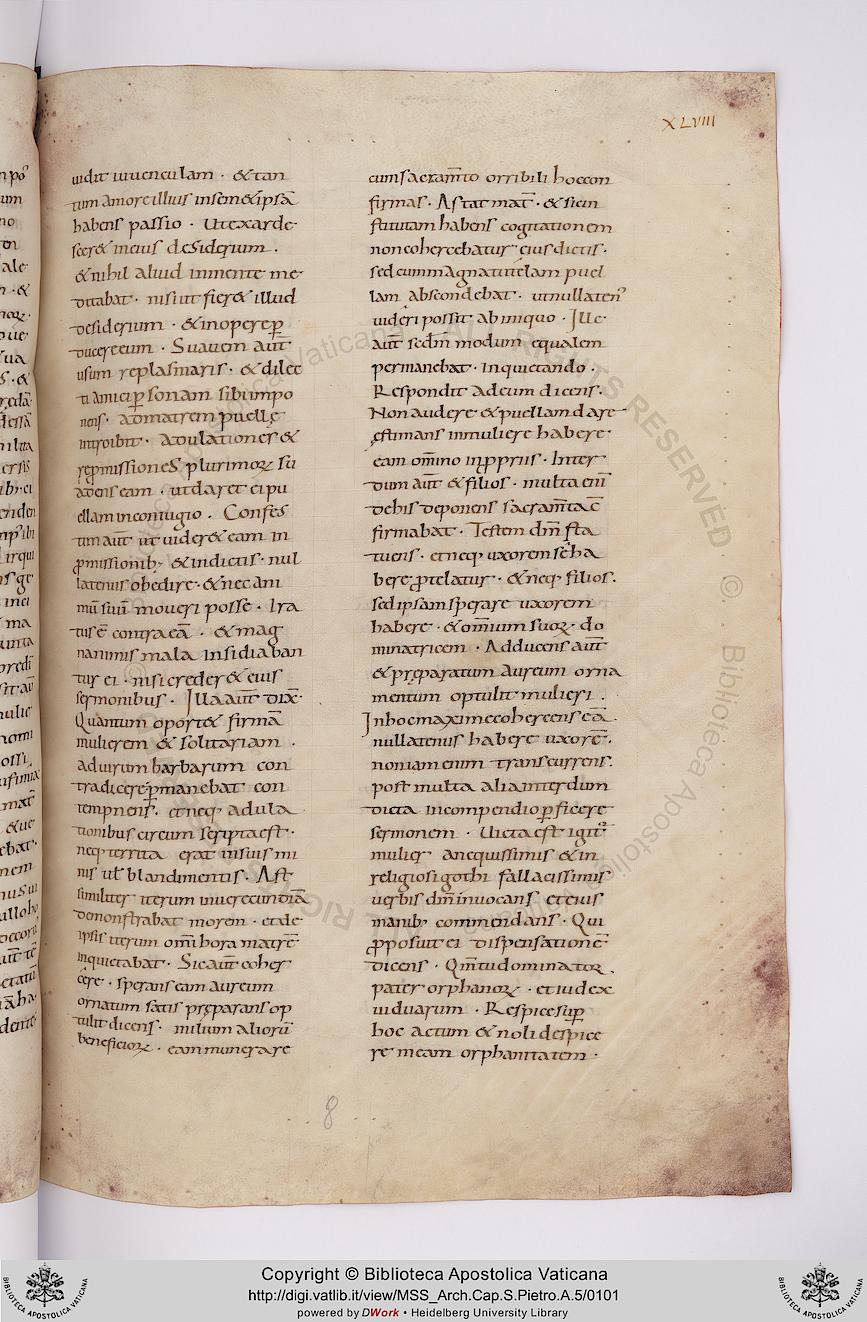 XLVIII
uidit iuuenculam · &tan
tum amore illius insem&ipsā
habens passio · Utexarde
scer& ineius desiderium ·
&nihil aliud inmente me
ditabat · nisi ut fier& illud
desiderium · &inopere p̄
ducere eum · Suauem aūt
usum replasmaris · & dilec
ti amici p̄sonam sibi inpo
nens · admatrem puellę
introibit · adulationes &
repmissiones plurimoꝝ su
adens eam · ut daret ei pu
ellam inconiugio · Confes
tim aūt ut uider& eam in
p̄missionib; & indictis · nul
latenus obedire · & nec ani
mū suū moueri posse · Ira
tus ē contra eā · & mag
nanimis mala insidiaban
tur ei · nisi creder& eius
sermonibus · Illa aūt dix̄ ·
Quantum oport& firmā
mulierem & solitariam ·
aduirum barbarum con
tradicere p̄manebat con
tempnens · et neq; adula
tionibus circum scripta est ·
neq; territa erat in suis mi
nis ut̄ blandimentis · Ast
similiter iterum inuerecundiā
demonstrabat morem · et de
ipsis iterum om̄i hora matrē
inquietabat · Sic aūt coher
cere · sperans eam aureum
ornatum satis pręparans op
tulit dicens · milium aliorū
beneficioꝝ · eam munerare
cum sacram̄to orribili hoc con
firmas · Astat mat̄ · & sic in
stitutam habens cogitationem
non cohercebatur eius dictis ·
sed cum magna tutelam puel
lam abscondebat · ut nullaten'
uideri possit ab iniquo · Ille
aūt sedm̄ modum equalem
permanebat · Inquietando ·
Respondit adeum dicens ·
Non audere & puellam dare
ęstimans in muliere habere
eam om̄ino inp̄priis · Inter
dum aūt & filios · multa enī
debis deponens sacram̄ta c̄
firmabat · Testem dm̄ sta
tuens · et neq; uxorem se ha
bere p̄telatur · & neq; filios ·
sed ipsam sperare uxorem
habere · & om̄ium suoꝝ · do
minatricem · Adducens aūt
& pręparatum aureum orna
mentum optulit mulieri ·
In hoc maxime cohercens eā ·
nullatenus habere uxorē ·
non iam enim transcurrens ·
post multa alia interdum
dicta incompendio p̄ficere
sermonem · Uicta est igit'
mulier anequissimis & in
religiosi gothi fallacissimis
uerbis dm̄ inuocans et eius
manib; commendans · Qui
p̄posuit ei dispensationē
dicens · Qm̄ tu dominatoꝝ ·
pater orphanoꝝ · et iudex
uiduarum · Respice sup̄
hoc actum & noli despice
re meam orphanitatem ·
8
Copyright © Biblioteca Apostolica Vaticana
http://digi.vatlib.it/view/MSS_Arch.Cap.S.Pietro.A.5/0101
powered by DWork • Heidelberg University Library